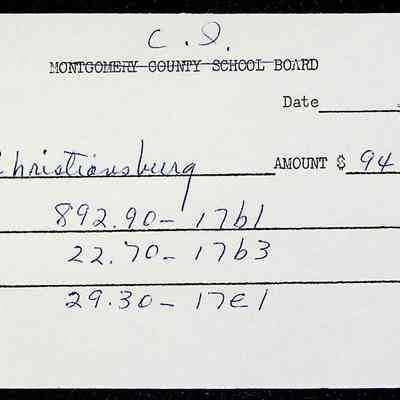 C. I.
MONTGOMERY COUNTY SCHOOL BOARD
Date
Christiansburg AMOUNT $ 94
892.90- 17b1
22.70- 17b3
29.30- 17E1